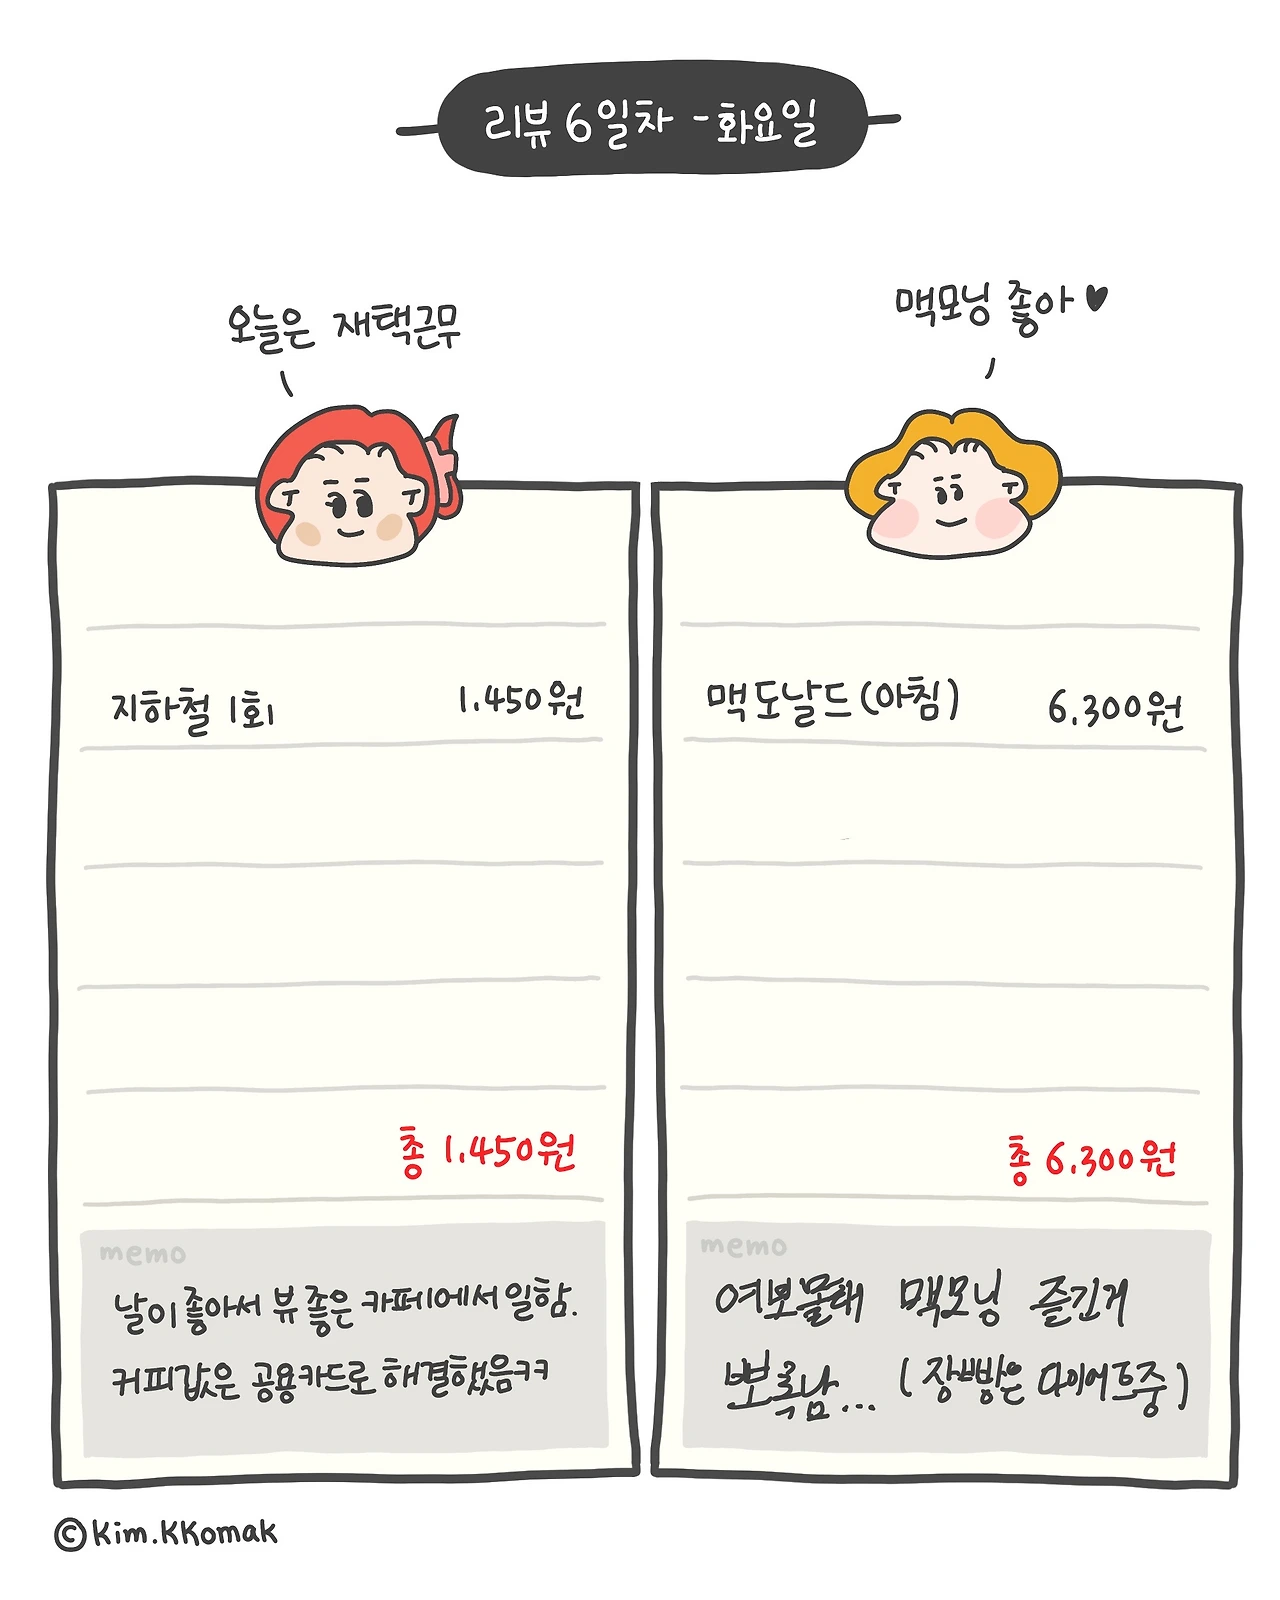 리뷰 6일차 - 화요일
오늘은 재택근무
맥모닝 좋아♥
지하철 1회 1.450원
총 1.450원
memo
날이 좋아서 뷰 좋은 카페에서 일함.
커피값은 공용카드로 해결했음ㅋㅋ
맥도날드(아침) 6.300원
총 6.300원
memo
여보몰래 맥모닝 즐긴게
뽀록남... (장빵은 다이어트중)
©Kim.KKomak